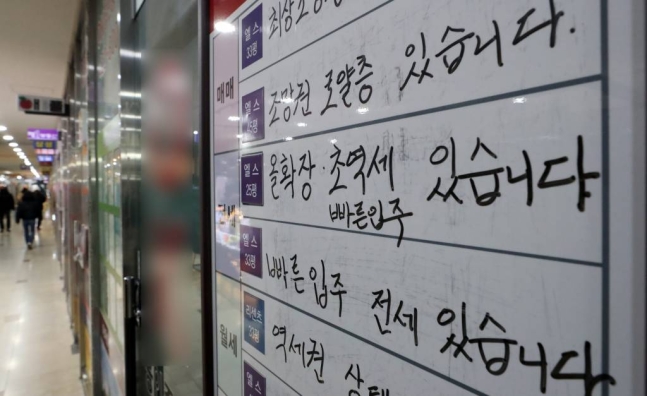 매매
엘스
33평
최상
엘스
조망권 로얄층 있습니다.
엘스
25평
올확장·초역세 있습니다
빠른입주
엘스
33평
빠른입주 전세 있습니다
33평
월세
역세권
엘스